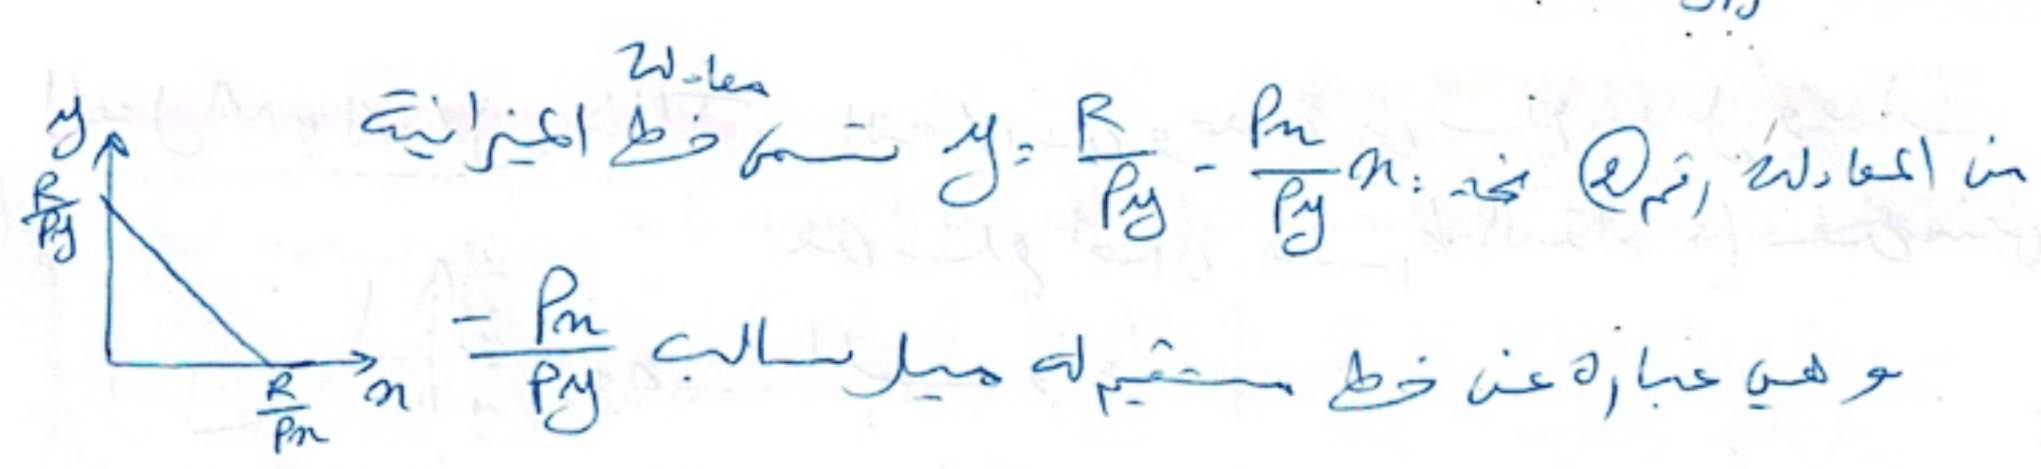 معادلة
من المعادلة رقم ② نجد: y = R/Py - Px/Py x تسمى خط الميزانية
وهي عبارة عن خط مستقيم له ميل سالب - Px/Py
y
R/Py
R/Px
x